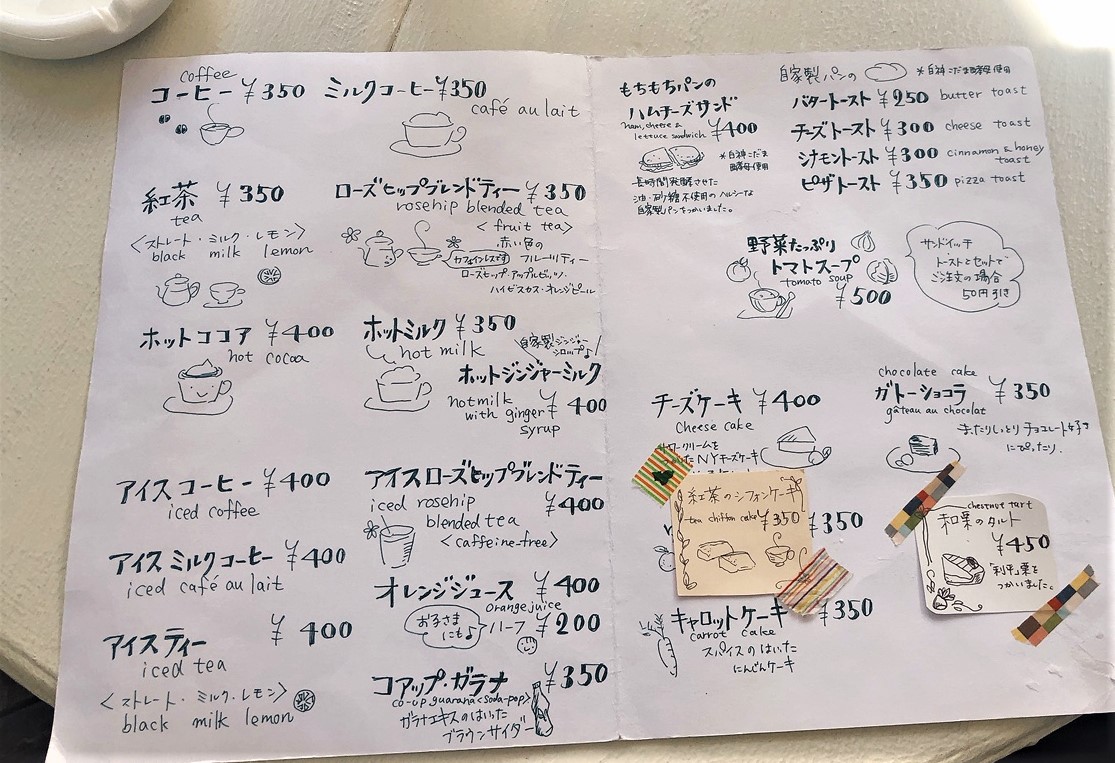 coffee
コーヒー ¥350
ミルクコーヒー ¥350
café au lait
紅茶 ¥350
tea
<ストレート・ミルク・レモン>
black milk lemon
ローズヒップブレンドティー ¥350
rosehip blended tea
<fruit tea>
赤い色の
カフェインレスです フルーツティー
ローズヒップ・アップルピッツ・
ハイビスカス・オレンジピール
ホットココア ¥400
hot cocoa
ホットミルク ¥350
hot milk
自家製ジンジャー
シロップ♪
ホットジンジャーミルク
hot milk
with ginger ¥400
syrup
アイスコーヒー ¥400
iced coffee
アイスローズヒップブレンドティー
iced rosehip ¥400
blended tea
<caffeine-free>
アイスミルクコーヒー ¥400
iced café au lait
オレンジジュース ¥400
orange juice
お子さま
にも♪
ハーフ ¥200
アイスティー ¥400
iced tea
<ストレート・ミルク・レモン>
black milk lemon
コアップ・ガラナ ¥350
co-up guarana <soda-pop>
ガラナエキスのはいった
ブラウンサイダー
もちもちパンの
ハムチーズサンド
ham, cheese &
lettuce sandwich ¥400
*白神こだま
酵母使用
長時間発酵させた
油・砂糖不使用のヘルシーな
自家製パンをつかいました。
自家製パンの *白神こだま酵母使用
バタートースト ¥250 butter toast
チーズトースト ¥300 cheese toast
シナモントースト ¥300 cinnamon & honey
toast
ピザトースト ¥350 pizza toast
野菜たっぷり
トマトスープ
tomato soup
¥500
サンドイッチ
トーストとセットで
ご注文の場合
50円引き
チーズケーキ ¥400
Cheese cake
ワークリームを
たNYチーズケーキ
chocolate cake
ガトーショコラ ¥350
gâteau au chocolat
まったりしっとり チョコレート好き
にぴったり.
紅茶のシフォンケーキ
tea chiffon cake ¥350
¥350
chestnut tart
和栗のタルト
¥450
「利平栗を
つかいました。
キャロットケーキ ¥350
carrot cake
スパイスのはいった
にんじんケーキ